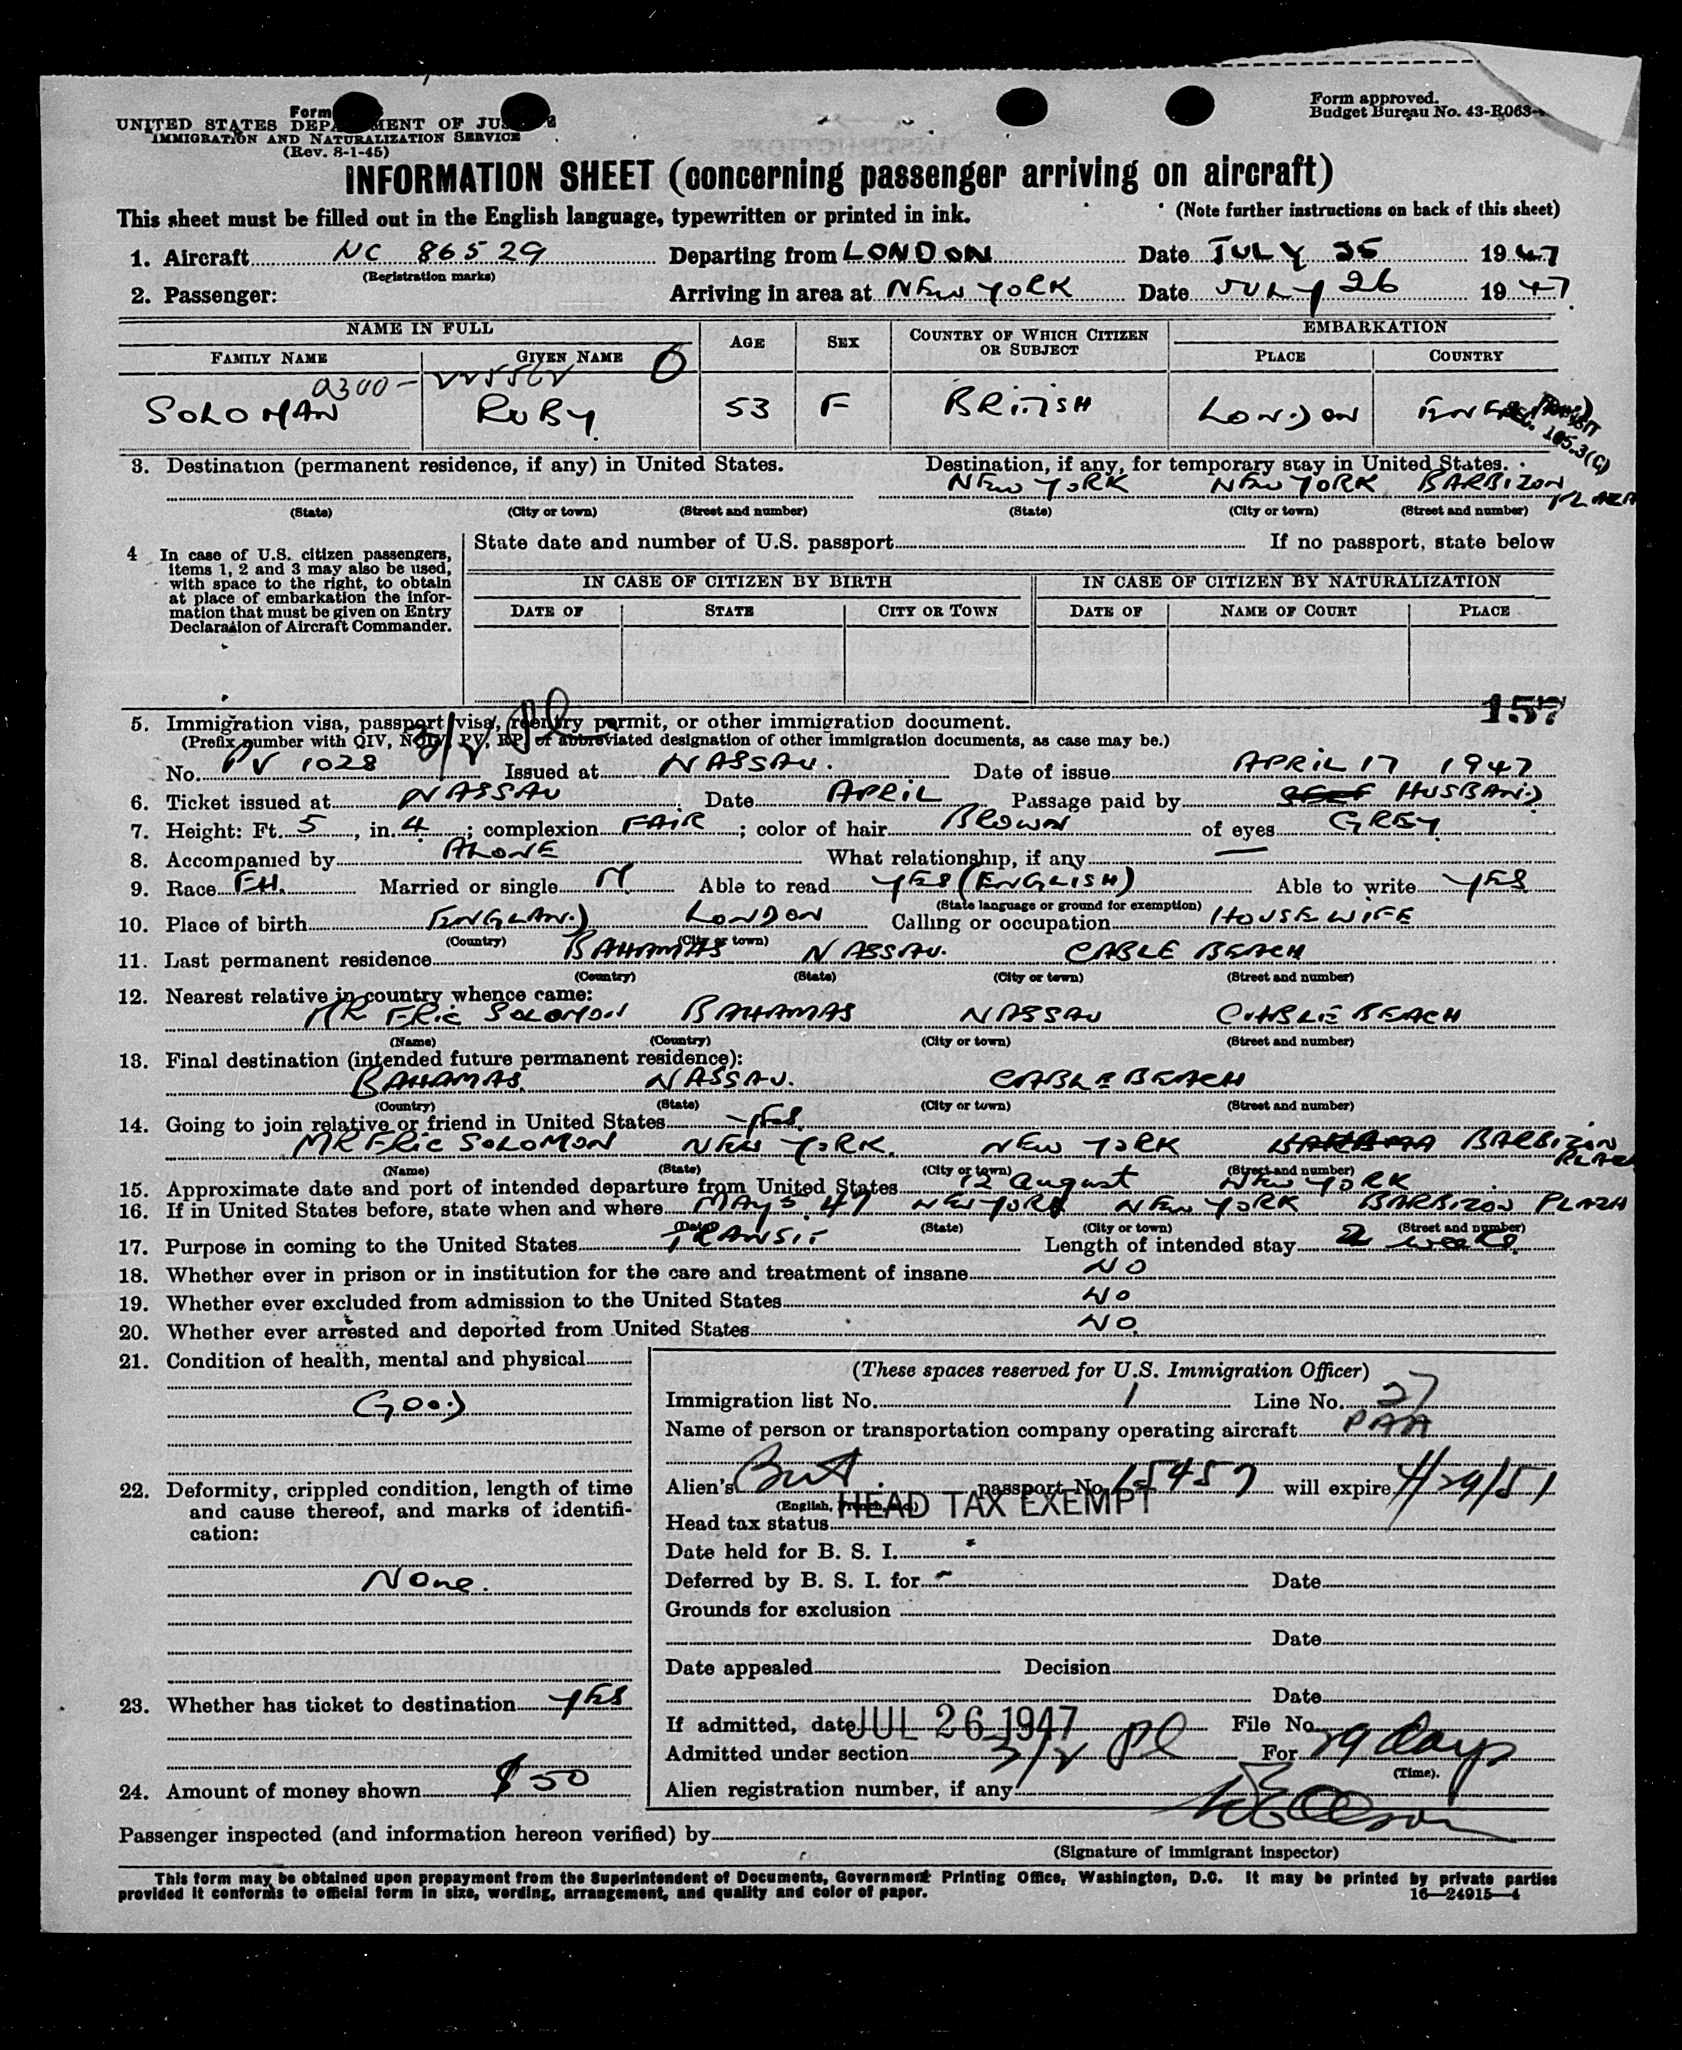 Form
UNITED STATES DEPARTMENT OF JUSTICE
IMMIGRATION AND NATURALIZATION SERVICE
(Rev. 8-1-45)
Form approved.
Budget Bureau No. 43-R063-
INFORMATION SHEET (concerning passenger arriving on aircraft)
This sheet must be filled out in the English language, typewritten or printed in ink. (Note further instructions on back of this sheet)
1. Aircraft NC 86529 Departing from LONDON Date JULY 25 1947
(Registration marks)
2. Passenger: Arriving in area at NEW YORK Date JULY 26 1947
NAME IN FULL AGE SEX COUNTRY OF WHICH CITIZEN OR SUBJECT EMBARKATION
FAMILY NAME GIVEN NAME PLACE COUNTRY
0300-
SOLOMAN RUBY 53 F BRITISH LONDON ENGLAND
105.3(C)
3. Destination (permanent residence, if any) in United States. Destination, if any, for temporary stay in United States.
NEW YORK NEW YORK BARBIZON PLAZA
(State) (City or town) (Street and number) (State) (City or town) (Street and number)
4 In case of U.S. citizen passengers, items 1, 2 and 3 may also be used, with space to the right, to obtain at place of embarkation the information that must be given on Entry Declaration of Aircraft Commander.
State date and number of U.S. passport If no passport, state below
IN CASE OF CITIZEN BY BIRTH IN CASE OF CITIZEN BY NATURALIZATION
DATE OF STATE CITY OR TOWN DATE OF NAME OF COURT PLACE
157
5. Immigration visa, passport visa, reentry permit, or other immigration document.
3/2 pl
(Prefix number with QIV, NQIV, PV, RP, or abbreviated designation of other immigration documents, as case may be.)
No. PV 1028 Issued at NASSAU. Date of issue APRIL 17 1947
6. Ticket issued at NASSAU Date APRIL Passage paid by HUSBAND
7. Height: Ft. 5, in. 4; complexion FAIR; color of hair BROWN of eyes GREY
8. Accompanied by ALONE What relationship, if any —
9. Race EH. Married or single M Able to read YES (ENGLISH) Able to write YES
(State language or ground for exemption)
10. Place of birth ENGLAND LONDON Calling or occupation HOUSEWIFE
(Country) (City or town)
11. Last permanent residence BAHAMAS NASSAU. CABLE BEACH
(Country) (State) (City or town) (Street and number)
12. Nearest relative in country whence came:
MR ERIC SOLOMON BAHAMAS NASSAU CABLE BEACH
(Name) (Country) (City or town) (Street and number)
13. Final destination (intended future permanent residence):
BAHAMAS. NASSAU. CABLE BEACH
(Country) (State) (City or town) (Street and number)
14. Going to join relative or friend in United States YES.
MR ERIC SOLOMON NEW YORK. NEW YORK BARBIZON PLAZA
(Name) (State) (City or town) (Street and number)
15. Approximate date and port of intended departure from United States 12 August NEW YORK
16. If in United States before, state when and where MAY 5. 47 NEW YORK NEW YORK BARBIZON PLAZA
(Date) (State) (City or town) (Street and number)
17. Purpose in coming to the United States TRANSIT Length of intended stay 2 weeks.
18. Whether ever in prison or in institution for the care and treatment of insane NO
19. Whether ever excluded from admission to the United States NO
20. Whether ever arrested and deported from United States NO.
21. Condition of health, mental and physical
GOOD
22. Deformity, crippled condition, length of time and cause thereof, and marks of identification:
None.
23. Whether has ticket to destination YES
24. Amount of money shown $50
(These spaces reserved for U.S. Immigration Officer)
Immigration list No. 1 Line No. 27
Name of person or transportation company operating aircraft PAA
Alien's Brit. passport No. 15457 will expire 4/29/51
(English, French, etc.)
Head tax status HEAD TAX EXEMPT
Date held for B. S. I.
Deferred by B. S. I. for - Date
Grounds for exclusion
Date
Date appealed Decision
Date
If admitted, date JUL 26 1947 File No.
Admitted under section 3/2 pl For 29 days
(Time).
Alien registration number, if any
Passenger inspected (and information hereon verified) by
(Signature of immigrant inspector)
This form may be obtained upon prepayment from the Superintendent of Documents, Government Printing Office, Washington, D.C. It may be printed by private parties
provided it conforms to official form in size, wording, arrangement, and quality and color of paper. 16—24915—4